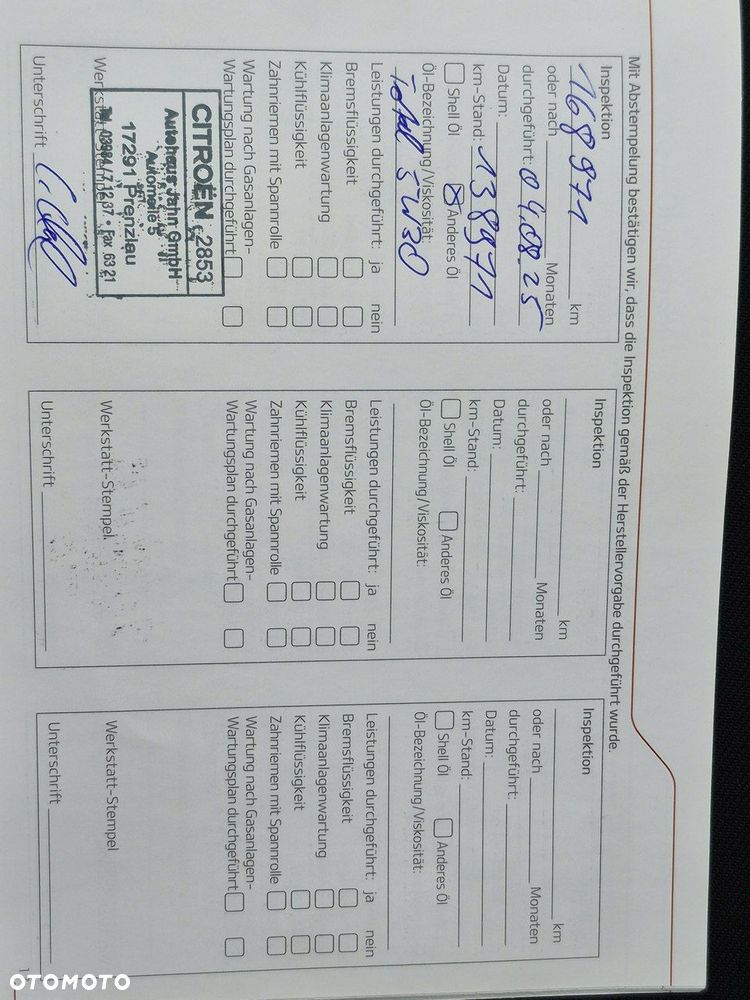 Mit Abstempelung bestätigen wir, dass die Inspektion gemäß der Herstellervorgabe durchgeführt wurde.
Inspektion
168 971 km
oder nach Monaten
durchgeführt:
Datum: 04.08.25
km-Stand: 138971
Shell Öl Anderes Öl
Öl-Bezeichnung/Viskosität:
Total 5W30
Leistungen durchgeführt: ja nein
Bremsflüssigkeit
Klimaanlagenwartung
Kühlflüssigkeit
Zahnriemen mit Spannrolle
Wartung nach Gasanlagen-
Wartungsplan durchgeführt
CITROËN 2853
Autohaus Jahn GmbH
Automeile 5
17291 Prenzlau
Tel. 03984 / 7 12 37 • Fax 63 21
Werkstatt-Stempel
Unterschrift
Inspektion
km
oder nach Monaten
durchgeführt:
Datum:
km-Stand:
Shell Öl Anderes Öl
Öl-Bezeichnung/Viskosität:
Leistungen durchgeführt: ja nein
Bremsflüssigkeit
Klimaanlagenwartung
Kühlflüssigkeit
Zahnriemen mit Spannrolle
Wartung nach Gasanlagen-
Wartungsplan durchgeführt
Werkstatt-Stempel
Unterschrift
Inspektion
km
oder nach Monaten
durchgeführt:
Datum:
km-Stand:
Shell Öl Anderes Öl
Öl-Bezeichnung/Viskosität:
Leistungen durchgeführt: ja nein
Bremsflüssigkeit
Klimaanlagenwartung
Kühlflüssigkeit
Zahnriemen mit Spannrolle
Wartung nach Gasanlagen-
Wartungsplan durchgeführt
Werkstatt-Stempel
Unterschrift
OTOMOTO